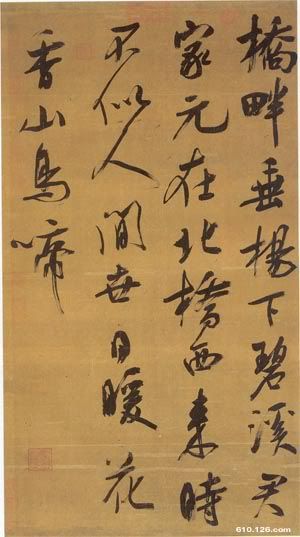 橋畔垂楊下碧溪君
家元在北橋西來時
不似人間世日暖花
香山鳥啼
610.126.com